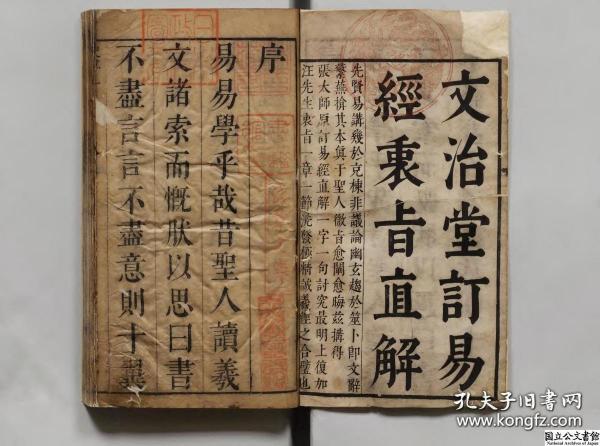 文治堂訂易
經衷旨直解
先賢易講幾於克棟非議論幽玄趨於筮卜即文辭
蕪搶其本真于聖人微旨愈闡愈晦茲搆得
張太師原訂易經直解一字一句討究最明上復如
汪先生衷旨一章一節洗發極精誠羲經之合璧也
序
易易學乎哉昔聖人讀羲
文諸索而慨肰以思曰書
不盡言言不盡意則十翼
孔夫子旧书网
www.kongfz.com
国立公文書館
National Archives of Japan